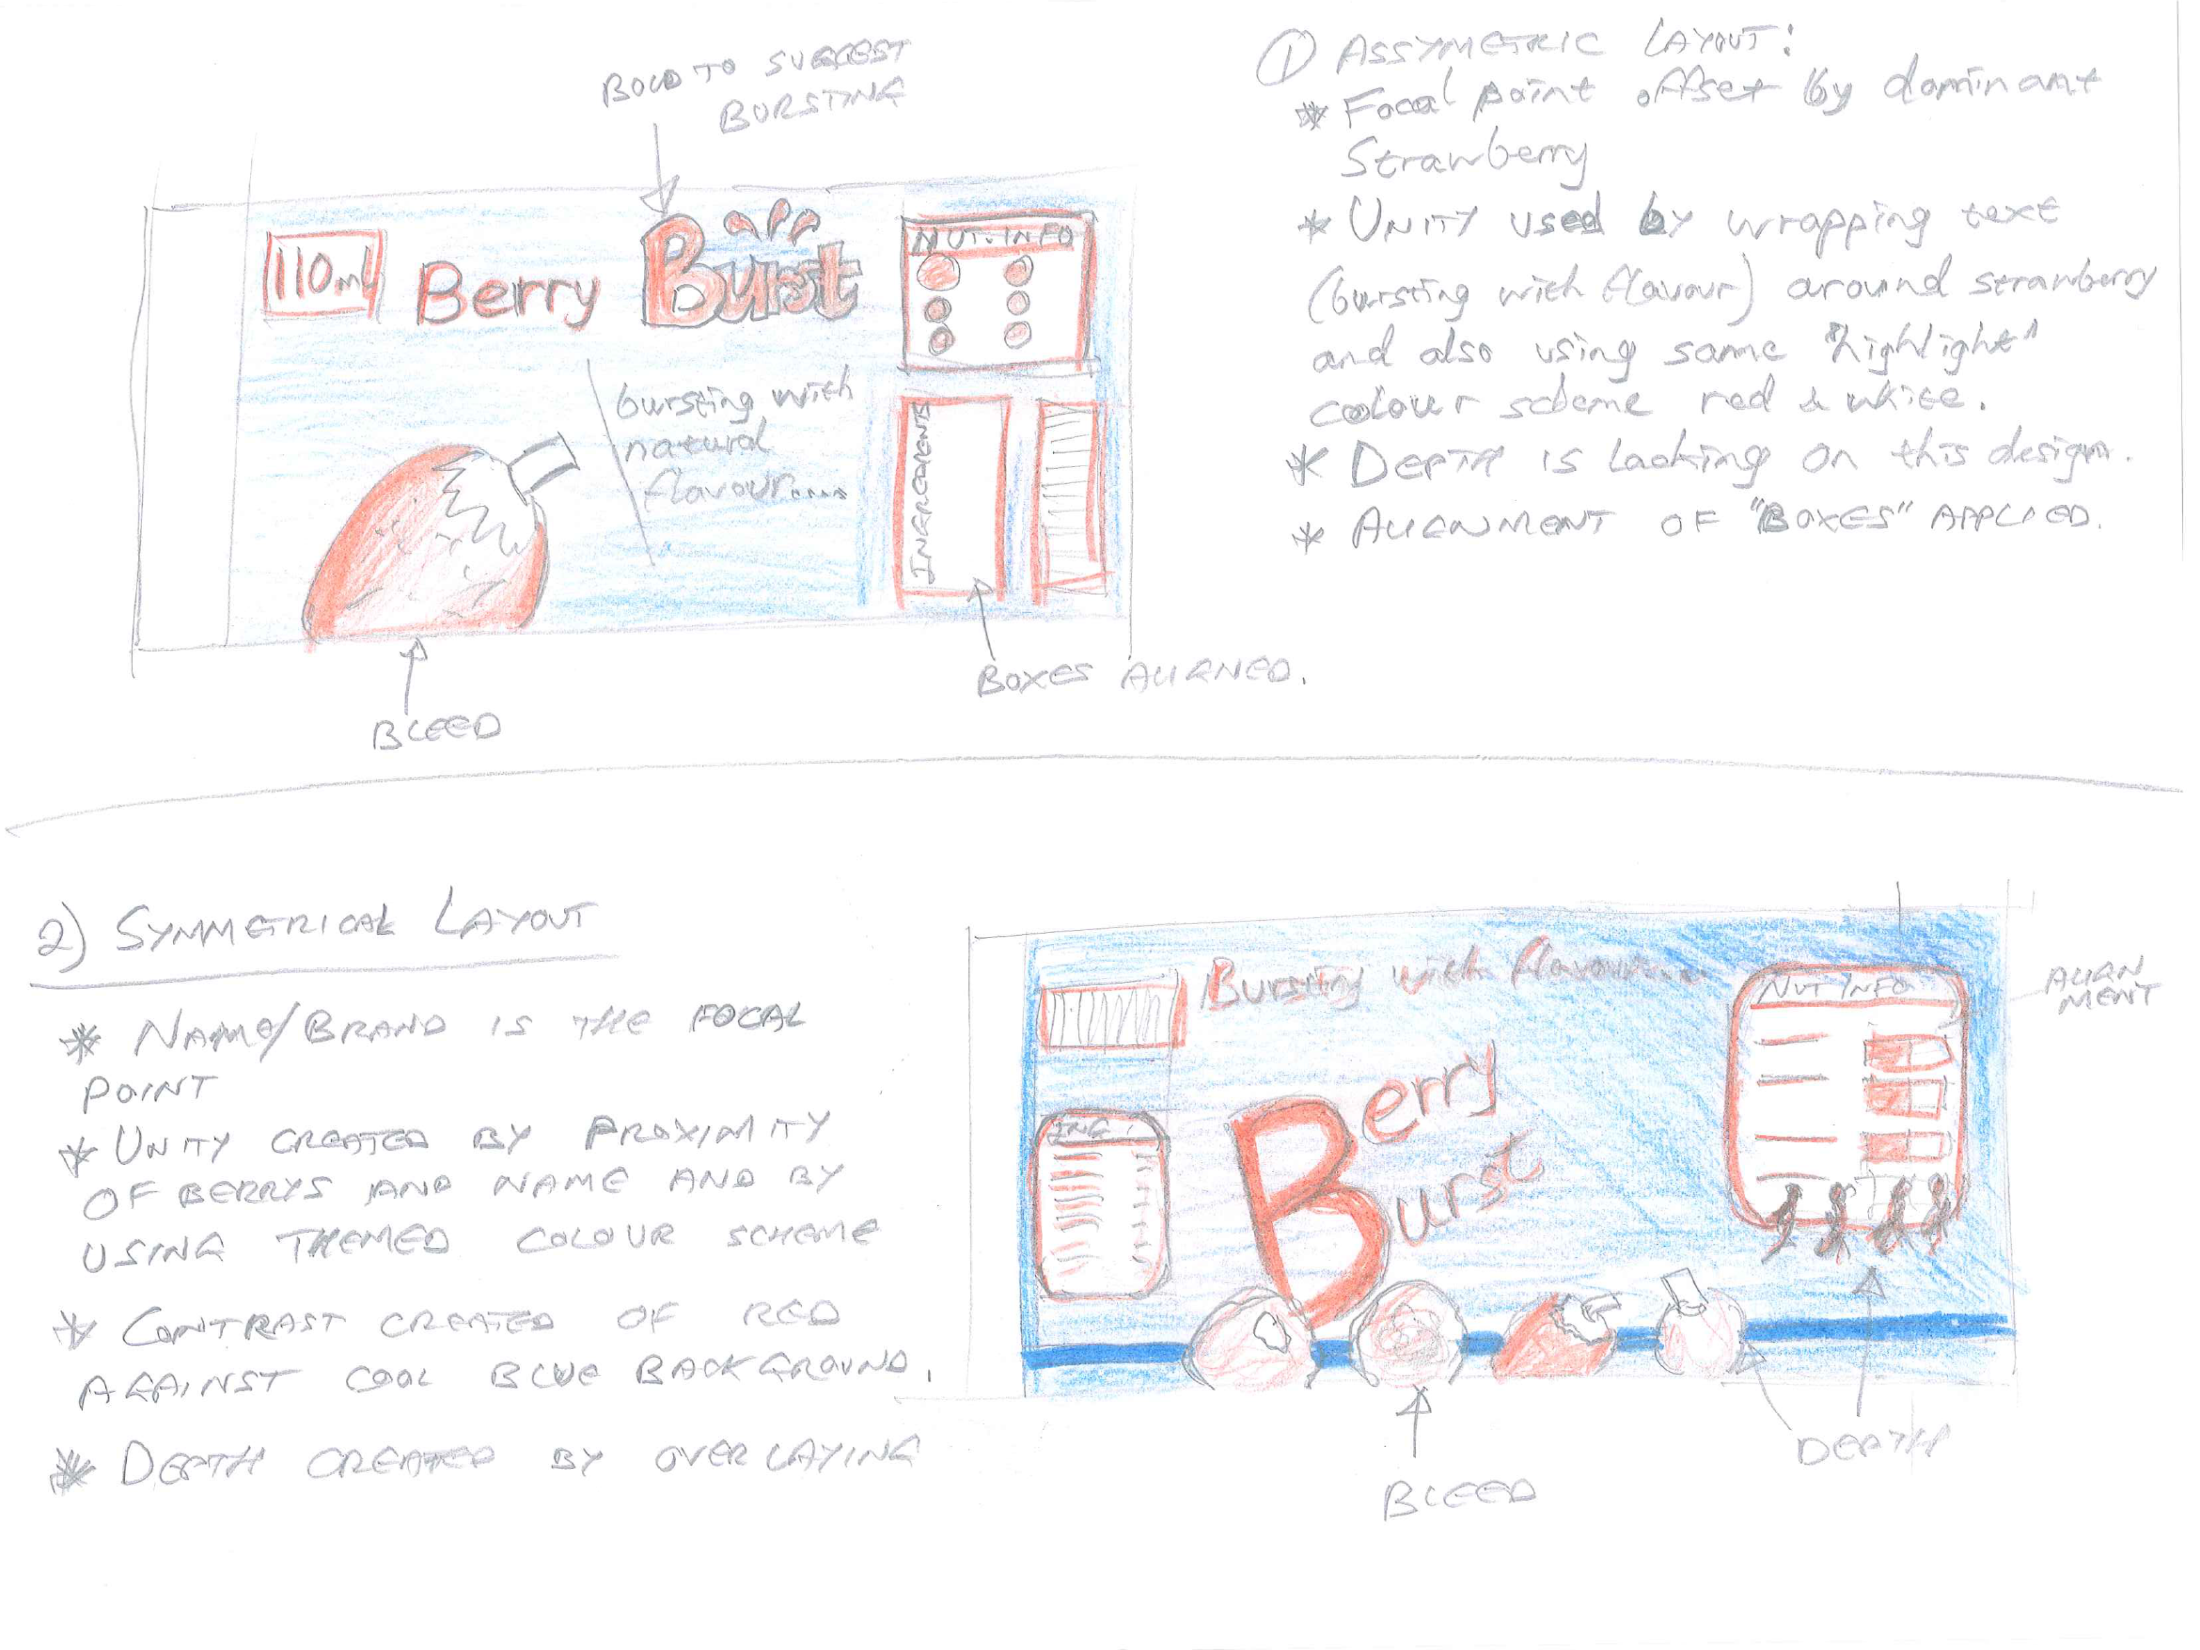 BOLD TO SUGGEST
BURSTING
110ml
Berry Burst
NUT. INFO
bursting with
natural
flavour....
INGREDIENTS
BLEED
BOXES ALIGNED.
① ASSYMETRIC LAYOUT:
* Focal point offset by dominant
Strawberry
* UNITY used by wrapping text
(bursting with flavour) around strawberry
and also using same "highlight"
colour scheme red & white.
* DEPTH is Lacking on this design.
* ALIGNMENT OF "BOXES" APPLIED.
2) SYMMETRICAL LAYOUT
* NAME/BRAND IS THE FOCAL
POINT
* UNITY CREATED BY PROXIMITY
OF BERRYS AND NAME AND BY
USING THEMED COLOUR SCHEME
* CONTRAST CREATED OF RED
AGAINST COOL BLUE BACKGROUND.
* DEPTH CREATED BY OVERLAYING
Bursting with flavour....
NUT INFO
ALIGN
MENT
ING
Berry
Burst
BLEED
DEPTH